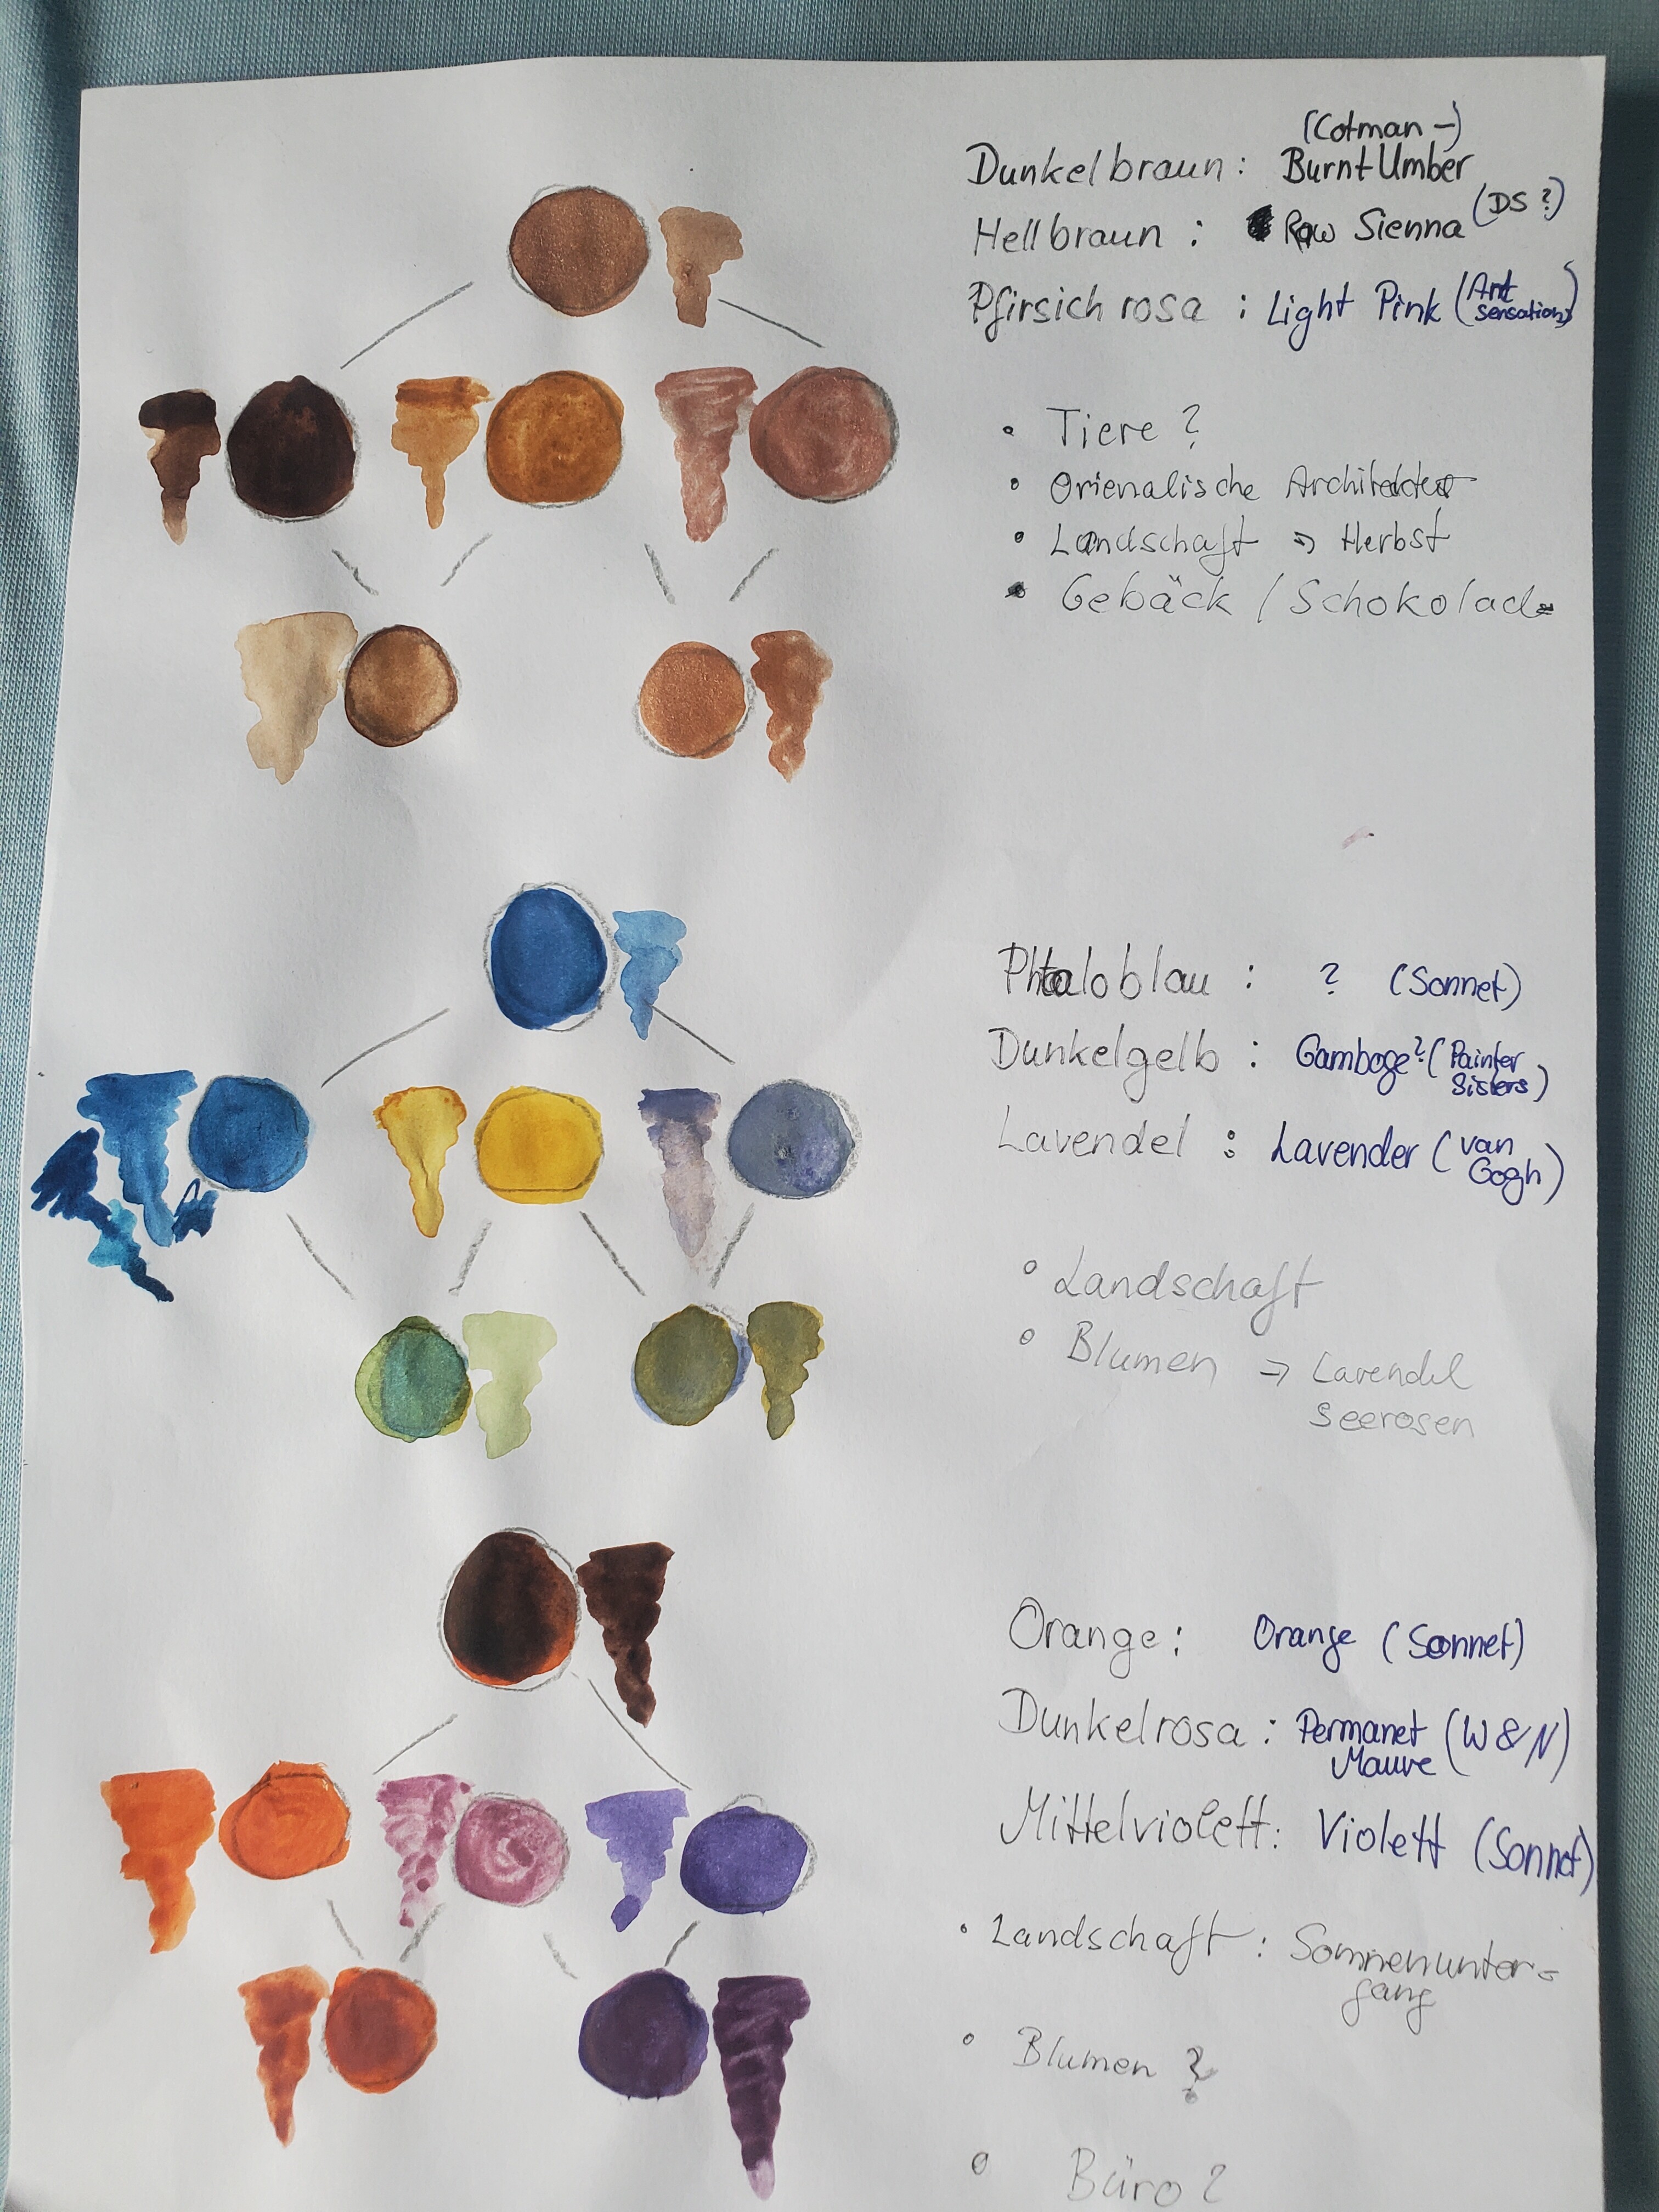 (Cotman-)
Dunkelbraun: Burnt Umber
Hellbraun: Raw Sienna (DS?)
Pfirsichrosa: Light Pink (Art Sensations)
• Tiere?
• Orienalische Architektur
• Landschaft => Herbst
• Gebäck / Schokolade
Phtaloblau: ? (Sonnet)
Dunkelgelb: Gamboge? (Painter Sisters)
Lavendel: Lavender (van Gogh)
• Landschaft
• Blumen => Lavendel
Seerosen
Orange: Orange (Sonnet)
Dunkelrosa: Permanet Mauve (W&N)
Mittelviolett: Violett (Sonnet)
• Landschaft: Sonnenunter=
gang
• Blumen ?
• Büro ?